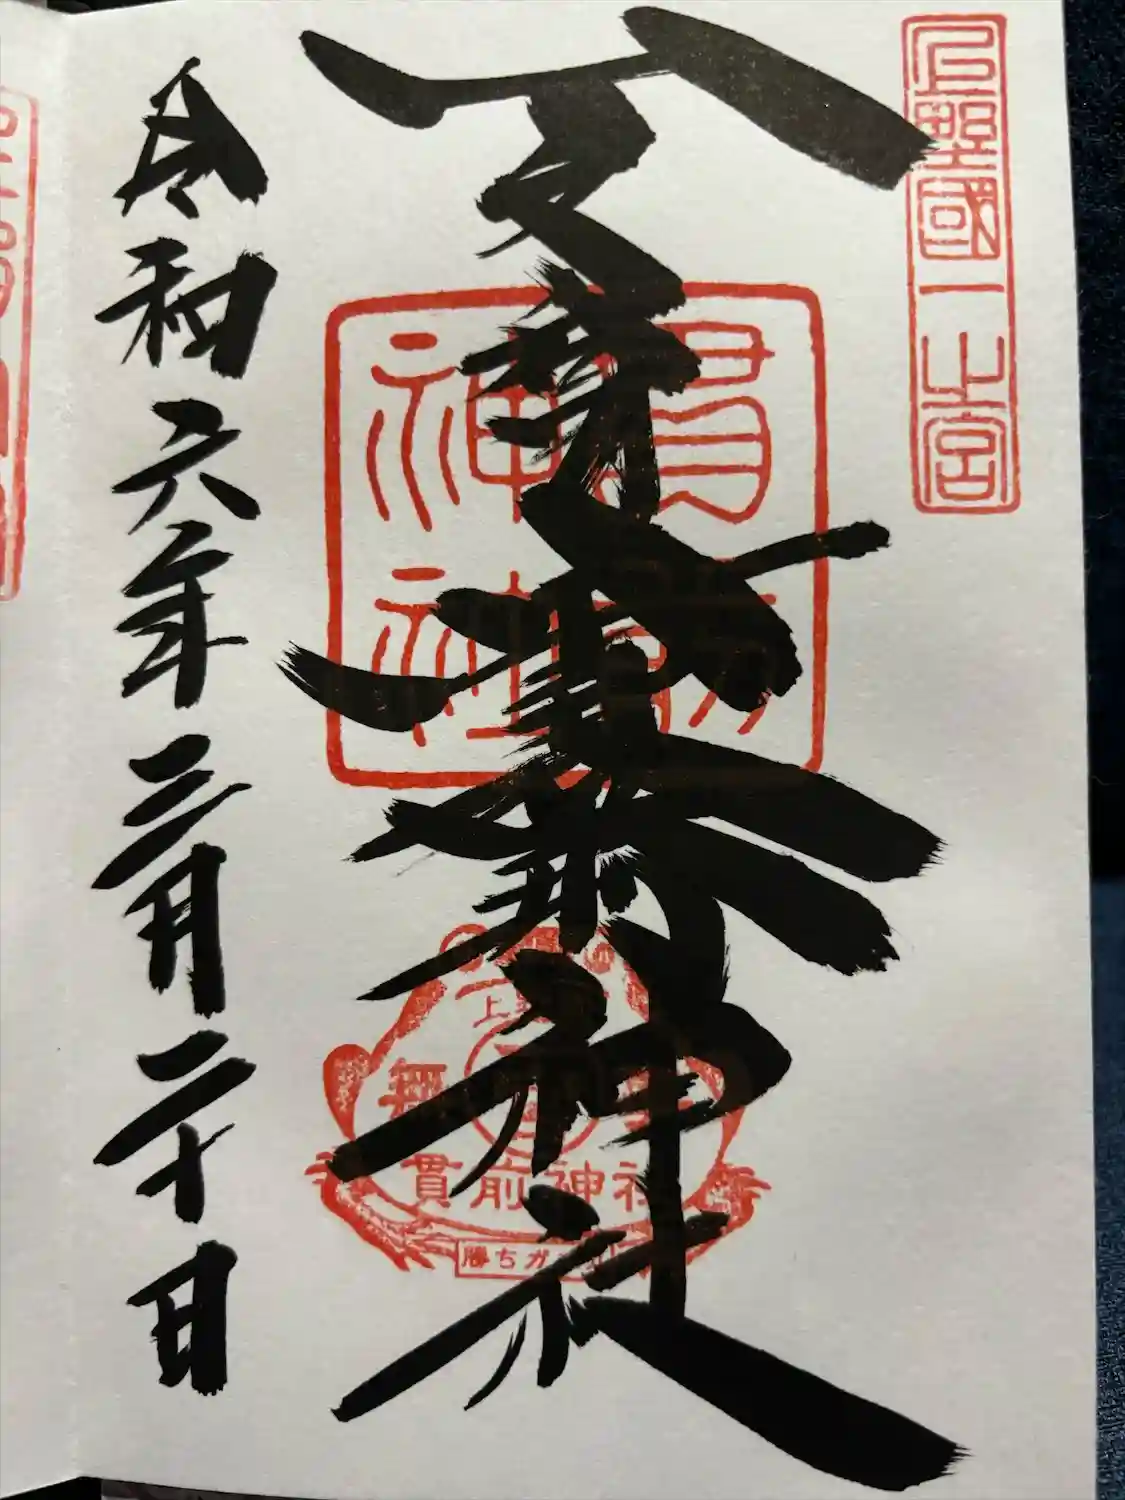 上野國一之宮
一之宮貫前神社
貫前
神社
無
貫前神社
勝ちガ
令和六年三月二十日